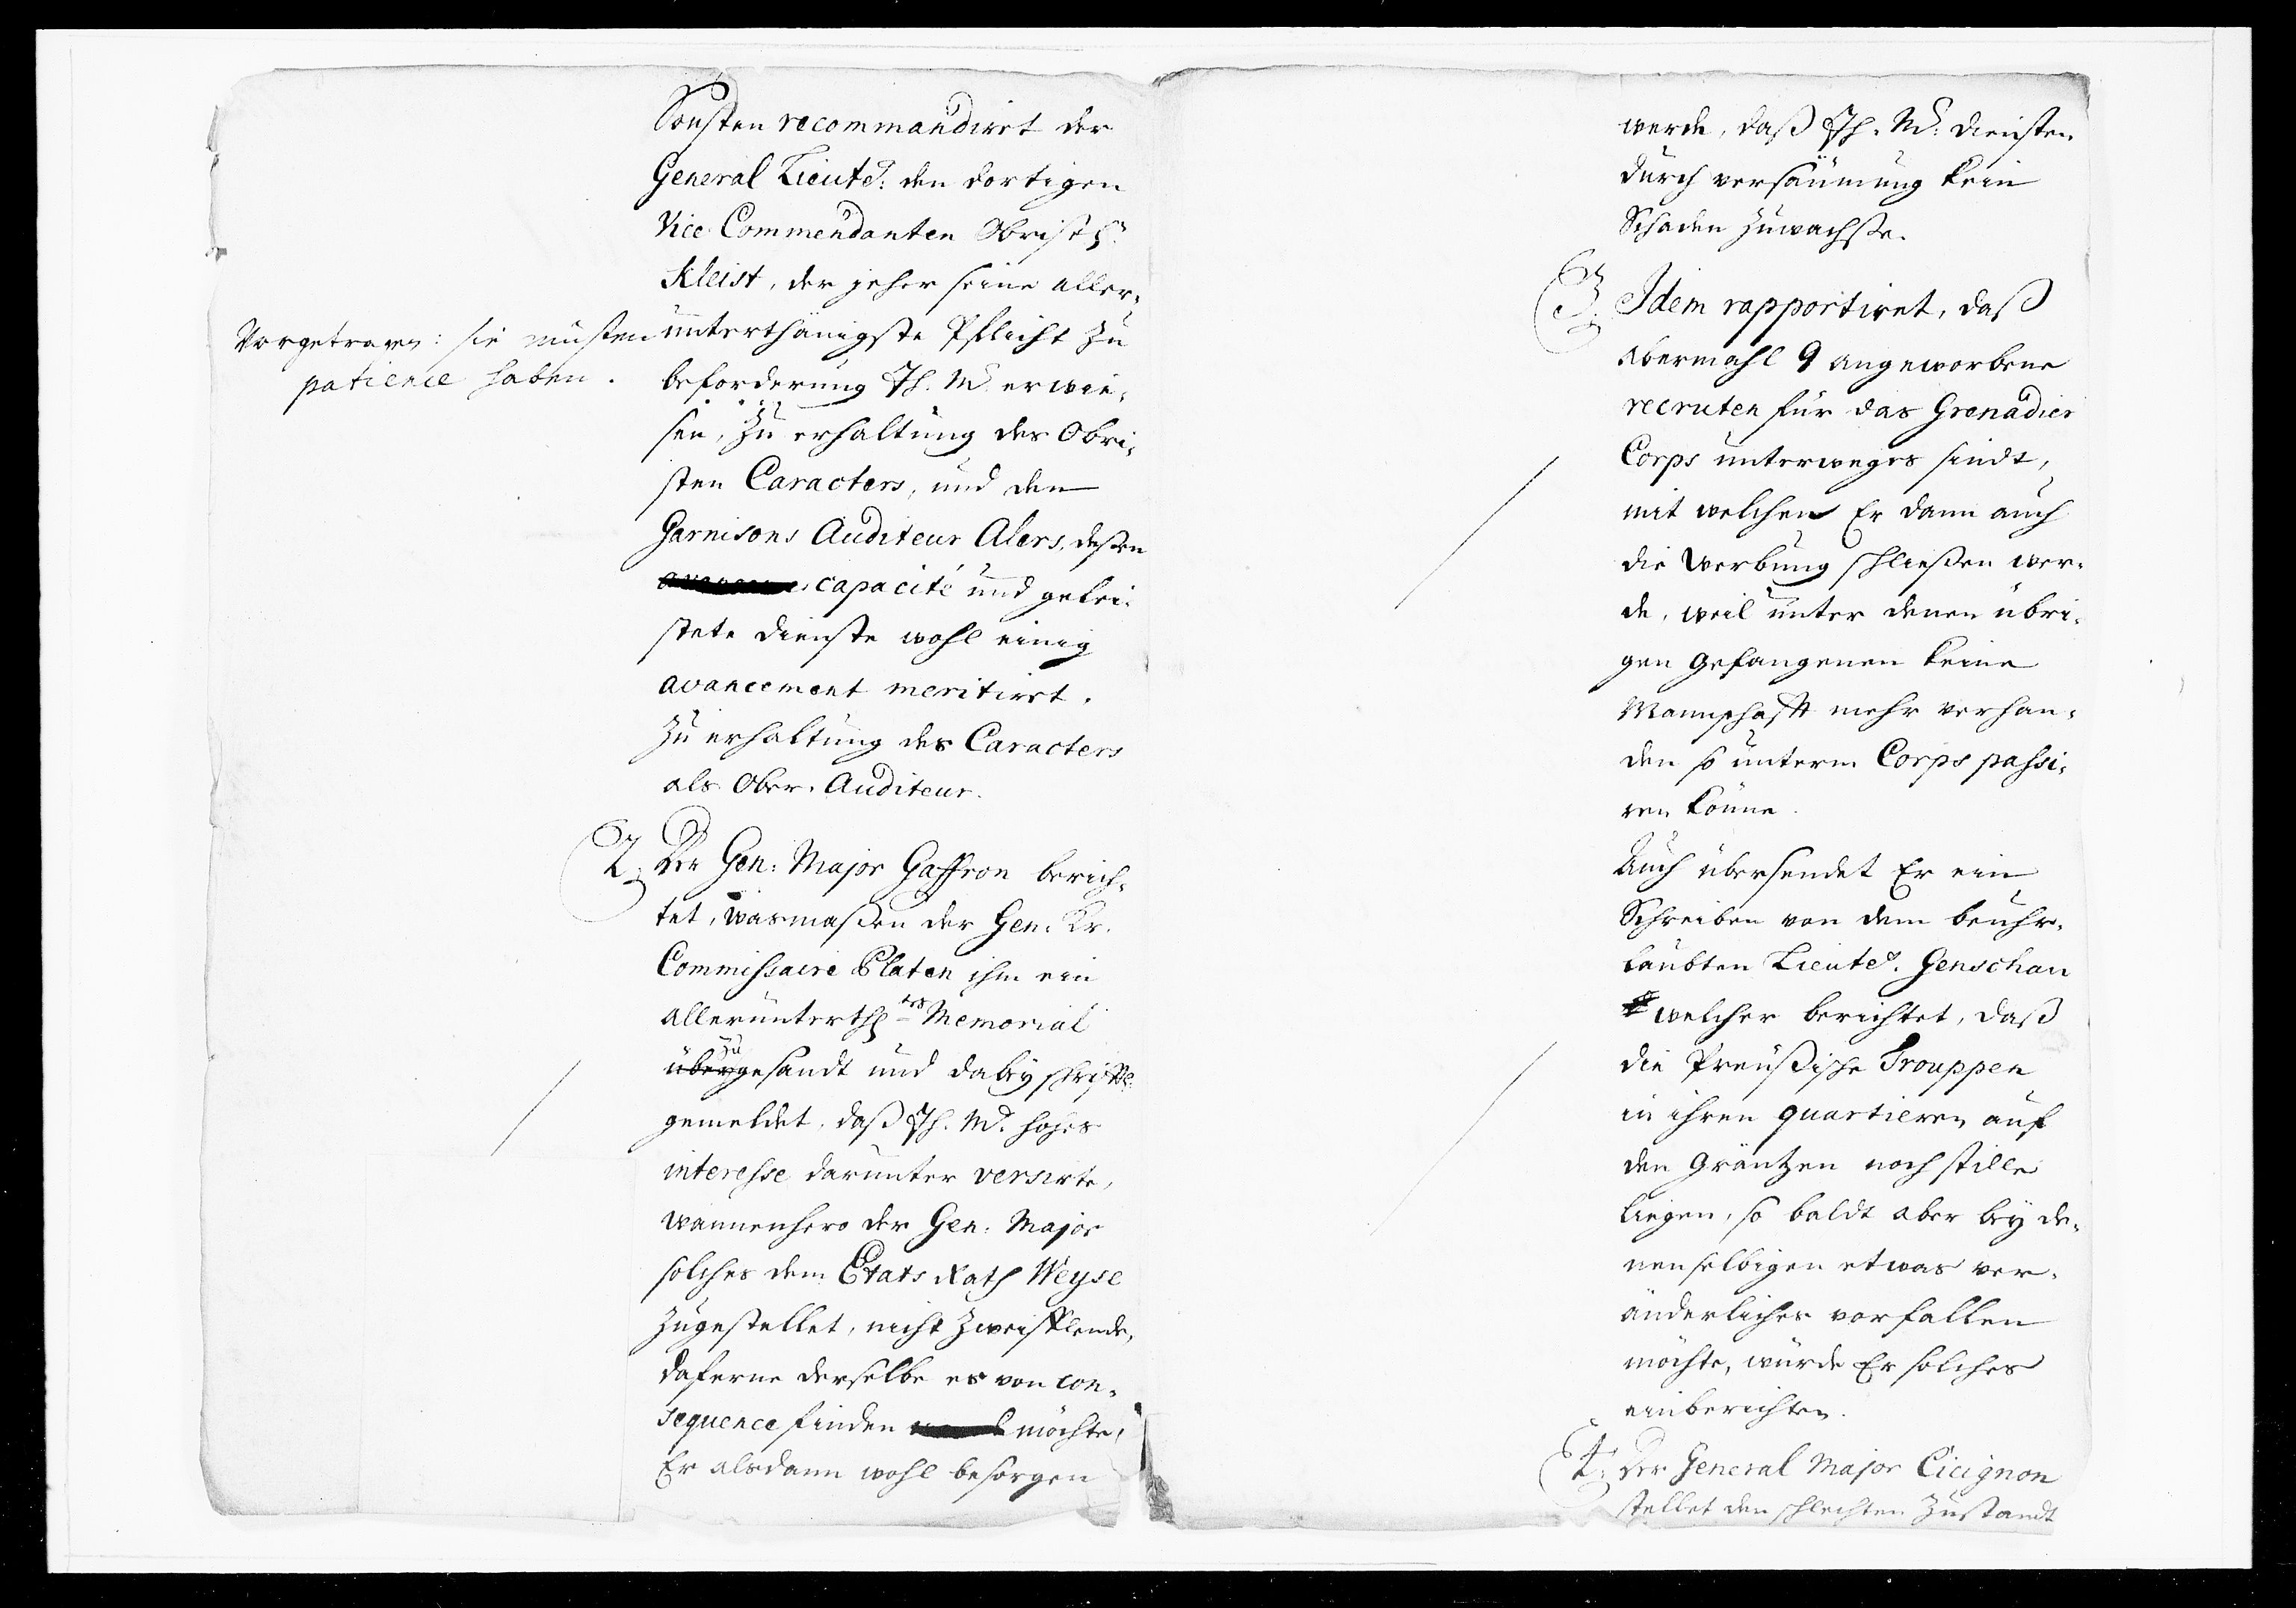 Sonsten recommandiret der
General Lieutet: den dortigen
Vice Commendanten Obristl.
Kleist, der jeher seine aller-
unterthänigste Pflicht zu
beforderung Ih. Mt. erwie-
sen, zu erhaltung des Obri-
sten Caracters, und den
Garnisons Auditeur Alers, deßen
capacité und gelei-
stete dienste wohl einig
avancement meritirt.
Zu erhaltung des Caracters
als Ober-Auditeur.
Vorgetragen: sie müsten
patience haben.
2. Der Gen: Major Gaffron berich-
tet, wasmaßen der Gen: Kr.
Commissaire Platen ihm ein
allerunterth-tes Memorial
über zu gesandt und dabey schrifftl.
gemeldet, daß Ih. Mt. hohes
interesse darunter versirte,
wannenhero der Gen: Major
solches dem Etats Rath Weyse
zugestellet, nicht zweifflende,
daferne derselbe es von con-
sequence finden möchte,
Er alsdann wohl besorgen
werde, daß Ih. Mt: diensten
durch versäumung kein
Schaden zuwachße.
3. Idem rapportiret, daß
abermahl 9 angeworbene
recruten für das Grenadier
Corps unterweges sindt,
mit welchen Er dann auch
die Werbung schließen wer-
de, weil unter denen übri-
gen gefangenen keine
Mannschafft mehr verhan-
den so unterm Corps passi-
ren könne.
Auch übersendet Er ein
Schreiben von dem beuhr-
laubten Lieutet. Genschau
welcher berichtet, daß
die Preußische Trouppen
in ihren quartieren auf
den Gräntzen noch stille
liegen, so baldt aber bey de-
nenselbigen etwas ver-
änderliches vorfallen
möchte, würde Er solches
einberichten.
4. Der General Major Cicignon
stellet den schlechten Zustandt